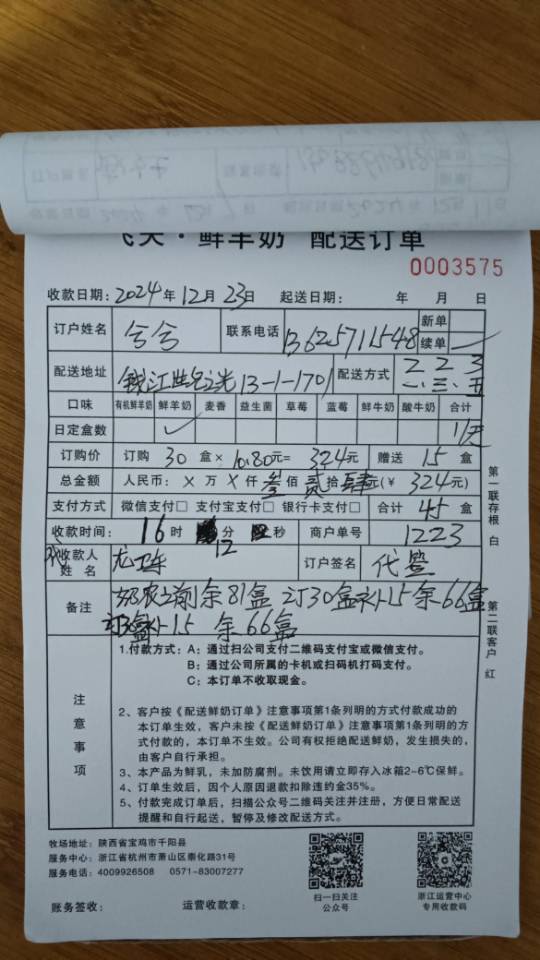 飞天·鲜羊奶 配送订单
0003575
收款日期：2024年12月23日 起送日期： 年 月 日
订户姓名 兮兮 联系电话 13625711548 新单
续单 ✓
配送地址 钱江世纪之光13-1-1701 配送方式 2 2 3
一、三、五
口味 有机鲜羊奶 鲜羊奶 麦香 益生菌 草莓 蓝莓 鲜牛奶 酸牛奶 合计
日定盒数 ✓ 1/天
订购价 订购 30 盒× 10.80元= 324元 赠送 15 盒
总金额 人民币：X 万 X 仟 叁 佰 贰 拾 肆 元(￥ 324元)
支付方式 微信支付□ 支付宝支付□ 银行卡支付□ 合计 45 盒
收款时间： 16 时 12 分 秒 商户单号 1223
收款人
姓名 龙卫东 订户签名 代签
备注 之前余81盒 订30盒补15 余66盒
订30盒补15 余66盒
第一联存根 白
第二联客户 红
注意事项
1.付款方式：A：通过扫公司支付二维码支付宝或微信支付。
B：通过公司所属的卡机或扫码机打码支付。
C：本订单不收取现金。
2、客户按《配送鲜奶订单》注意事项第1条列明的方式付款成功的
本订单生效，客户未按《配送鲜奶订单》注意事项第1条列明的方
式付款的，本订单不生效。公司有权拒绝配送鲜奶，发生损失的，
由客户自行承担。
3、本产品为鲜乳，未加防腐剂。未饮用请立即存入冰箱2~6℃保鲜。
4、订单生效后，因个人原因退款扣除违约金35%。
5、付款完成订单后，扫描公众号二维码关注并注册，方便日常配送
提醒和自行起送，暂停及修改配送方式。
牧场地址：陕西省宝鸡市千阳县
服务中心：浙江省杭州市萧山区泰化路31号
服务电话：4009926508 0571-83007277
扫一扫关注
公众号
浙江运营中心
专用收款码
账务签收： 运营收款章：